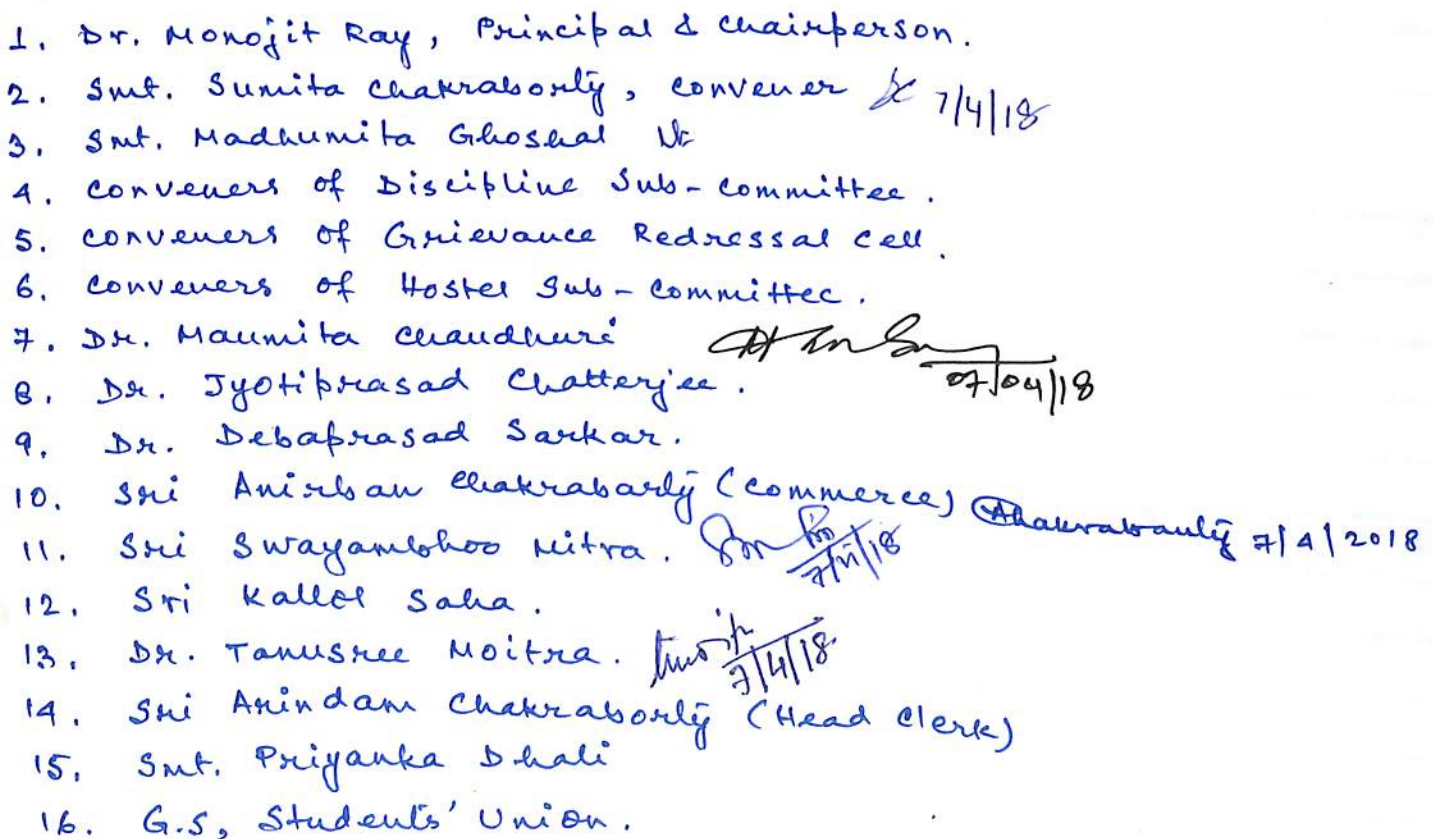 1. Dr. Monojit Ray, Principal & Chairperson.
2. Smt. Sumita Chakraborty, Convener 7/4/18
3. Smt. Madhumita Ghoshal
4. Conveners of Discipline Sub-Committee.
5. Conveners of Grievance Redressal Cell.
6. Conveners of Hostel Sub-Committee.
7. Dr. Maumita Chaudhuri
8. Dr. Jyotiprasad Chatterjee. 07/04/18
9. Dr. Debaprasad Sarkar.
10. Sri Anirban Chakrabarty (Commerce) AChakrabarty 7/4/2018
11. Sri Swayambhoo Mitra.
12. Sri Kallol Saha.
13. Dr. Tanusree Moitra. 7/4/18
14. Sri Arindam Chakraborty (Head Clerk)
15. Smt. Priyanka Dhali
16. G.S, Students' Union.